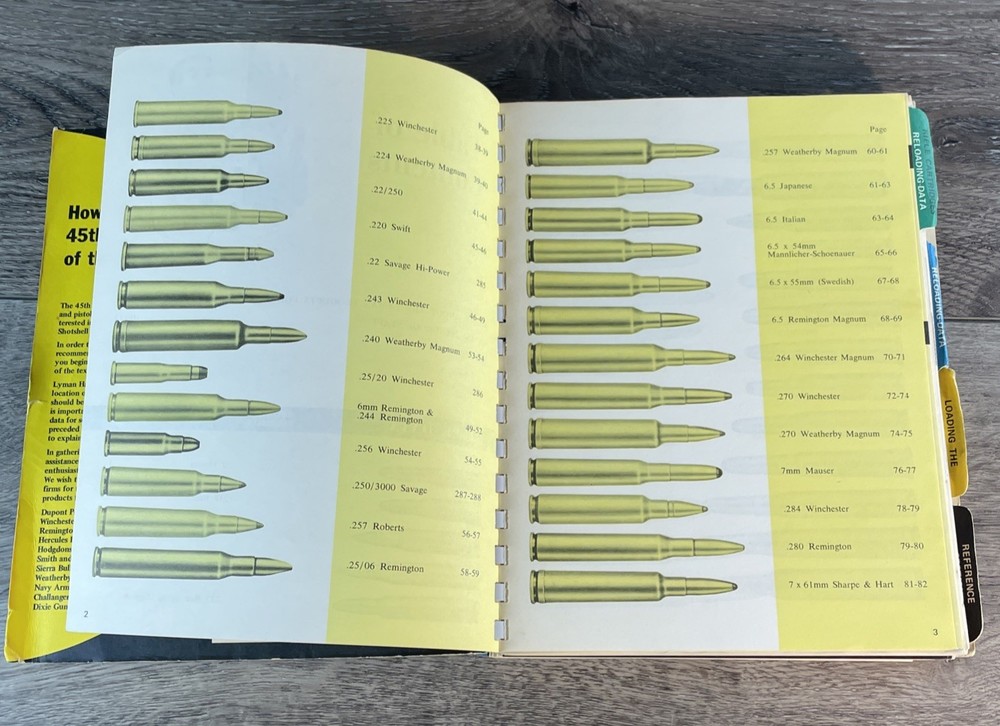 How
45th
of t
The 45th
and pistol
terested i
Shotshell
In order t
recomme
you begin
of the tex
Lyman H
location o
should be
is importa
data for s
preceded
to explain
In gatheri
assistance
enthusias
We wish t
firms for
products
Dupont P
Wincheste
Remingto
Hercules
Hodgdon
Smith and
Sierra Bul
Weatherby
Navy Arm
Challanger
Dixie Gun
Page
.225 Winchester 38-39
.224 Weatherby Magnum 39-40
.22/250 41-44
.220 Swift 45-46
.22 Savage Hi-Power 285
.243 Winchester 46-49
.240 Weatherby Magnum 53-54
.25/20 Winchester 286
6mm Remington &
.244 Remington 49-52
.256 Winchester 54-55
.250/3000 Savage 287-288
.257 Roberts 56-57
.25/06 Remington 58-59
2
Page
.257 Weatherby Magnum 60-61
6.5 Japanese 61-63
6.5 Italian 63-64
6.5 x 54mm
Mannlicher-Schoenauer 65-66
6.5 x 55mm (Swedish) 67-68
6.5 Remington Magnum 68-69
.264 Winchester Magnum 70-71
.270 Winchester 72-74
.270 Weatherby Magnum 74-75
7mm Mauser 76-77
.284 Winchester 78-79
.280 Remington 79-80
7 x 61mm Sharpe & Hart 81-82
3
RELOADING DATA
RELOADING DATA
LOADING THE
REFERENCE